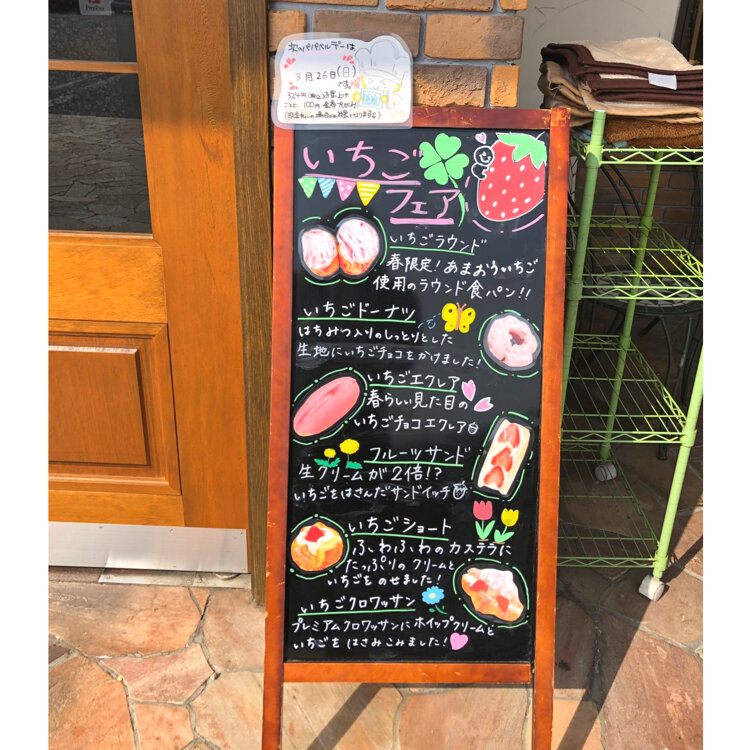 PayPay
次のパパベルデーは
3月26日(日)
です。
324円(税込)お買上げ
ごとに 100円 金券
いちご
フェア
いちごラウンド
春限定！あまおういちご
使用のラウンド食パン!!
いちごドーナツ
はちみつ入りのしっとりとした
生地にいちごチョコをかけました！
いちごエクレア
春らしい見た目の
いちごチョコエクレア
フルーツサンド
生クリームが2倍!?
いちごをはさんだサンドイッチ
いちごショート
ふわふわのカステラに
たっぷりのクリームと
いちごをのせました！
いちごクロワッサン
プレミアムクロワッサンにホイップクリームと
いちごをはさみこみました！